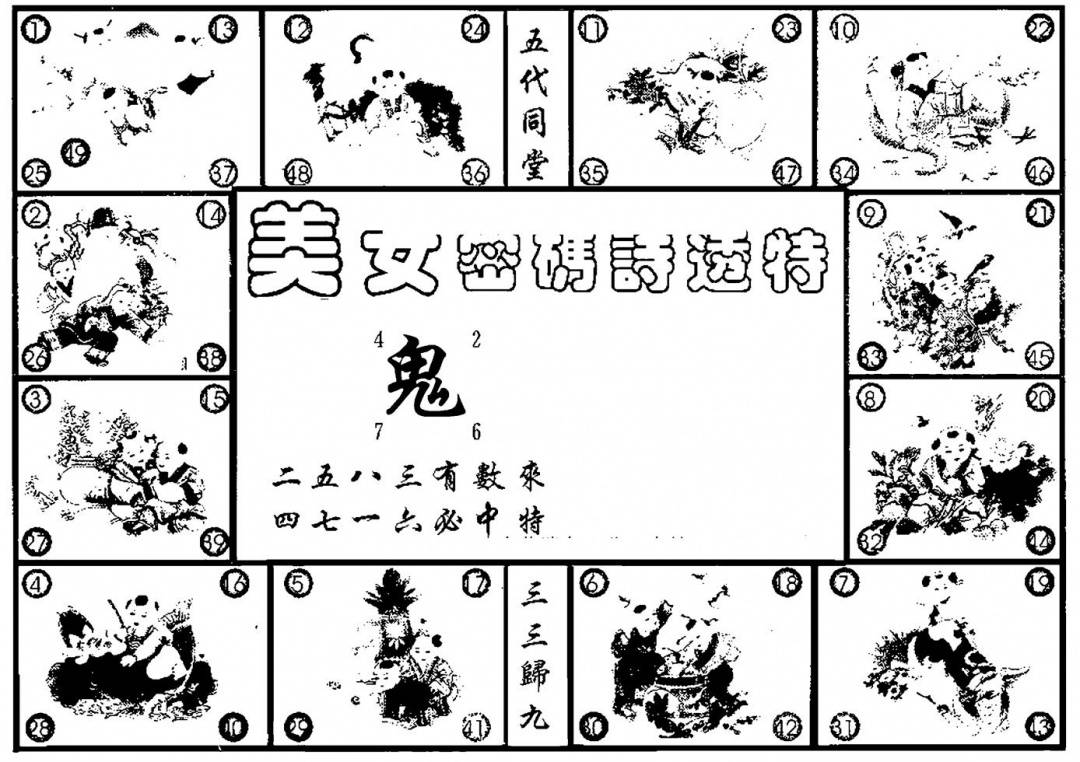 ① ⑬
㊾
㉕ ㊲
⑫ ㉔
㊽ ㊱
五代同堂
⑪ ㉓
㉟ ㊼
⑩ ㉒
㉞ ㊻
② ⑭
㉖ ㊳
美女密碼詩透特
4 2
鬼
7 6
二五八三有數來
四七一六必中特
⑨ ㉑
㉝ ㊺
③ ⑮
㉗ ㊴
⑧ ⑳
㉜ ㊹
④ ⑯
㉘ ㊵
⑤ ⑰
㉙ ㊶
三三歸九
⑥ ⑱
㉚ ㊷
⑦ ⑲
㉛ ㊸